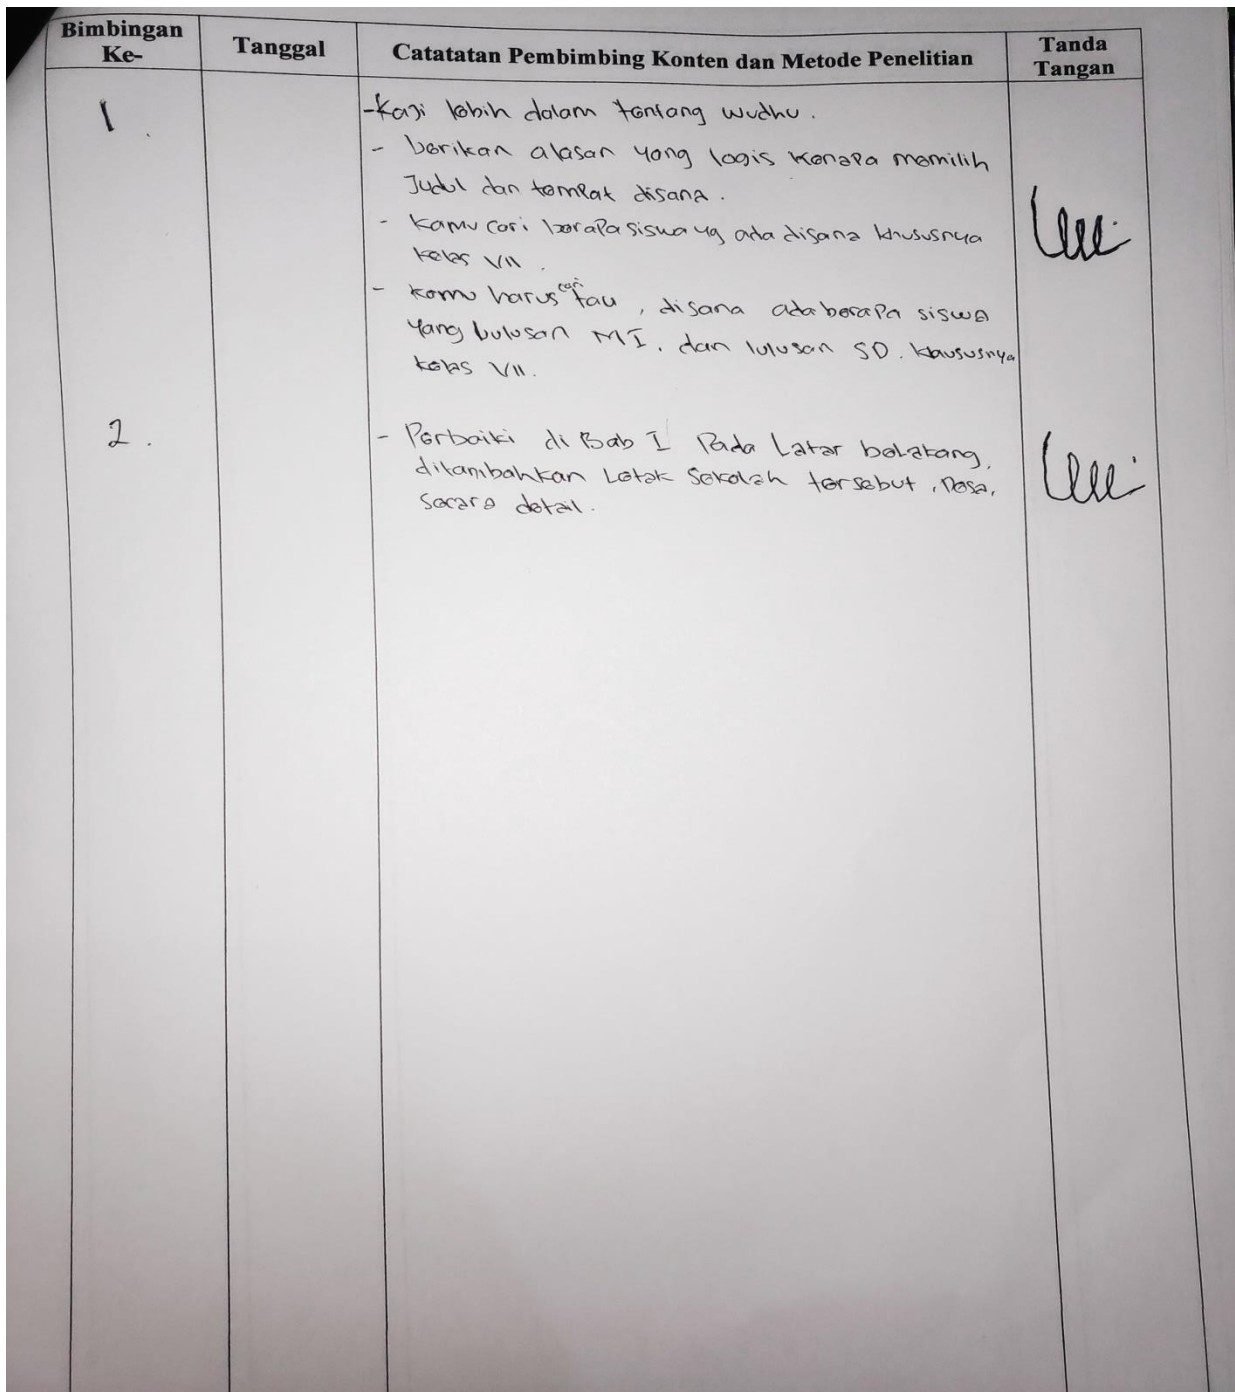 Bimbingan Ke-
Tanggal
Catatatan Pembimbing Konten dan Metode Penelitian
Tanda Tangan
1
- Kaji lebih dalam tentang wudhu.
- berikan alasan yang logis kenapa memilih
Judul dan tempat disana.
- Kamu cari berapa siswa yg ada disana khususnya
kelas VII.
- Kamu harus cari tau, disana ada berapa siswa
yang lulusan MI, dan lulusan SD. khususnya
kelas VII.
2.
- Perbaiki di Bab I Pada Latar belakang,
ditambahkan Letak Sekolah tersebut, Desa,
Secara detail.